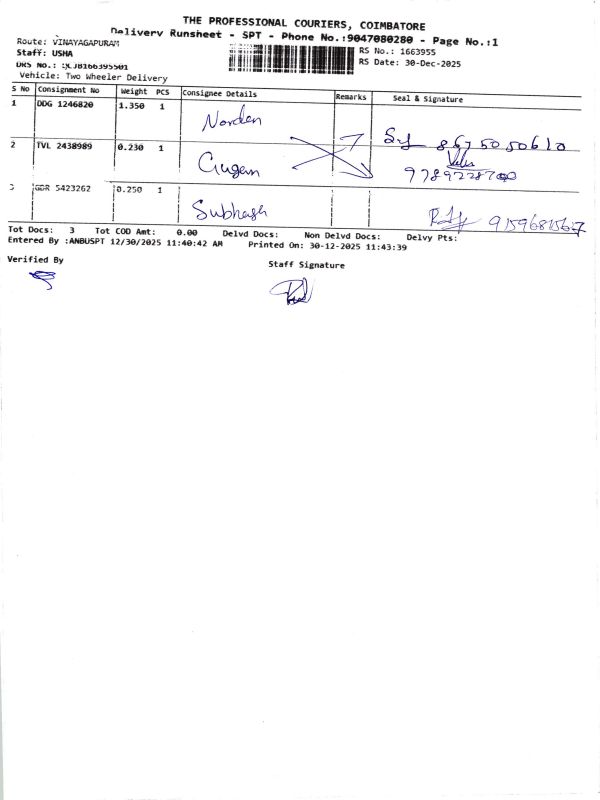 THE PROFESSIONAL COURIERS, COIMBATORE
Delivery Runsheet - SPT - Phone No.:9047080280 - Page No.:1
Route: VINAYAGAPURAM
RS No.: 1663955
Staff: USHA
RS Date: 30-Dec-2025
DRS No.:
Vehicle: Two Wheeler Delivery
S No Consignment No Weight PCS Consignee Details Remarks Seal & Signature
1 DDG 1246820 1.350 1 Norden 8675050610
2 TVL 2438989 0.230 1 Gugan 9789228700
3 GDR 5423262 0.250 1 Subhash
Tot Docs: 3 Tot COD Amt: 0.00 Delvd Docs: Non Delvd Docs: Delvy Pts:
Entered By :ANBUSPT 12/30/2025 11:40:42 AM Printed On: 30-12-2025 11:43:39
Verified By
Staff Signature